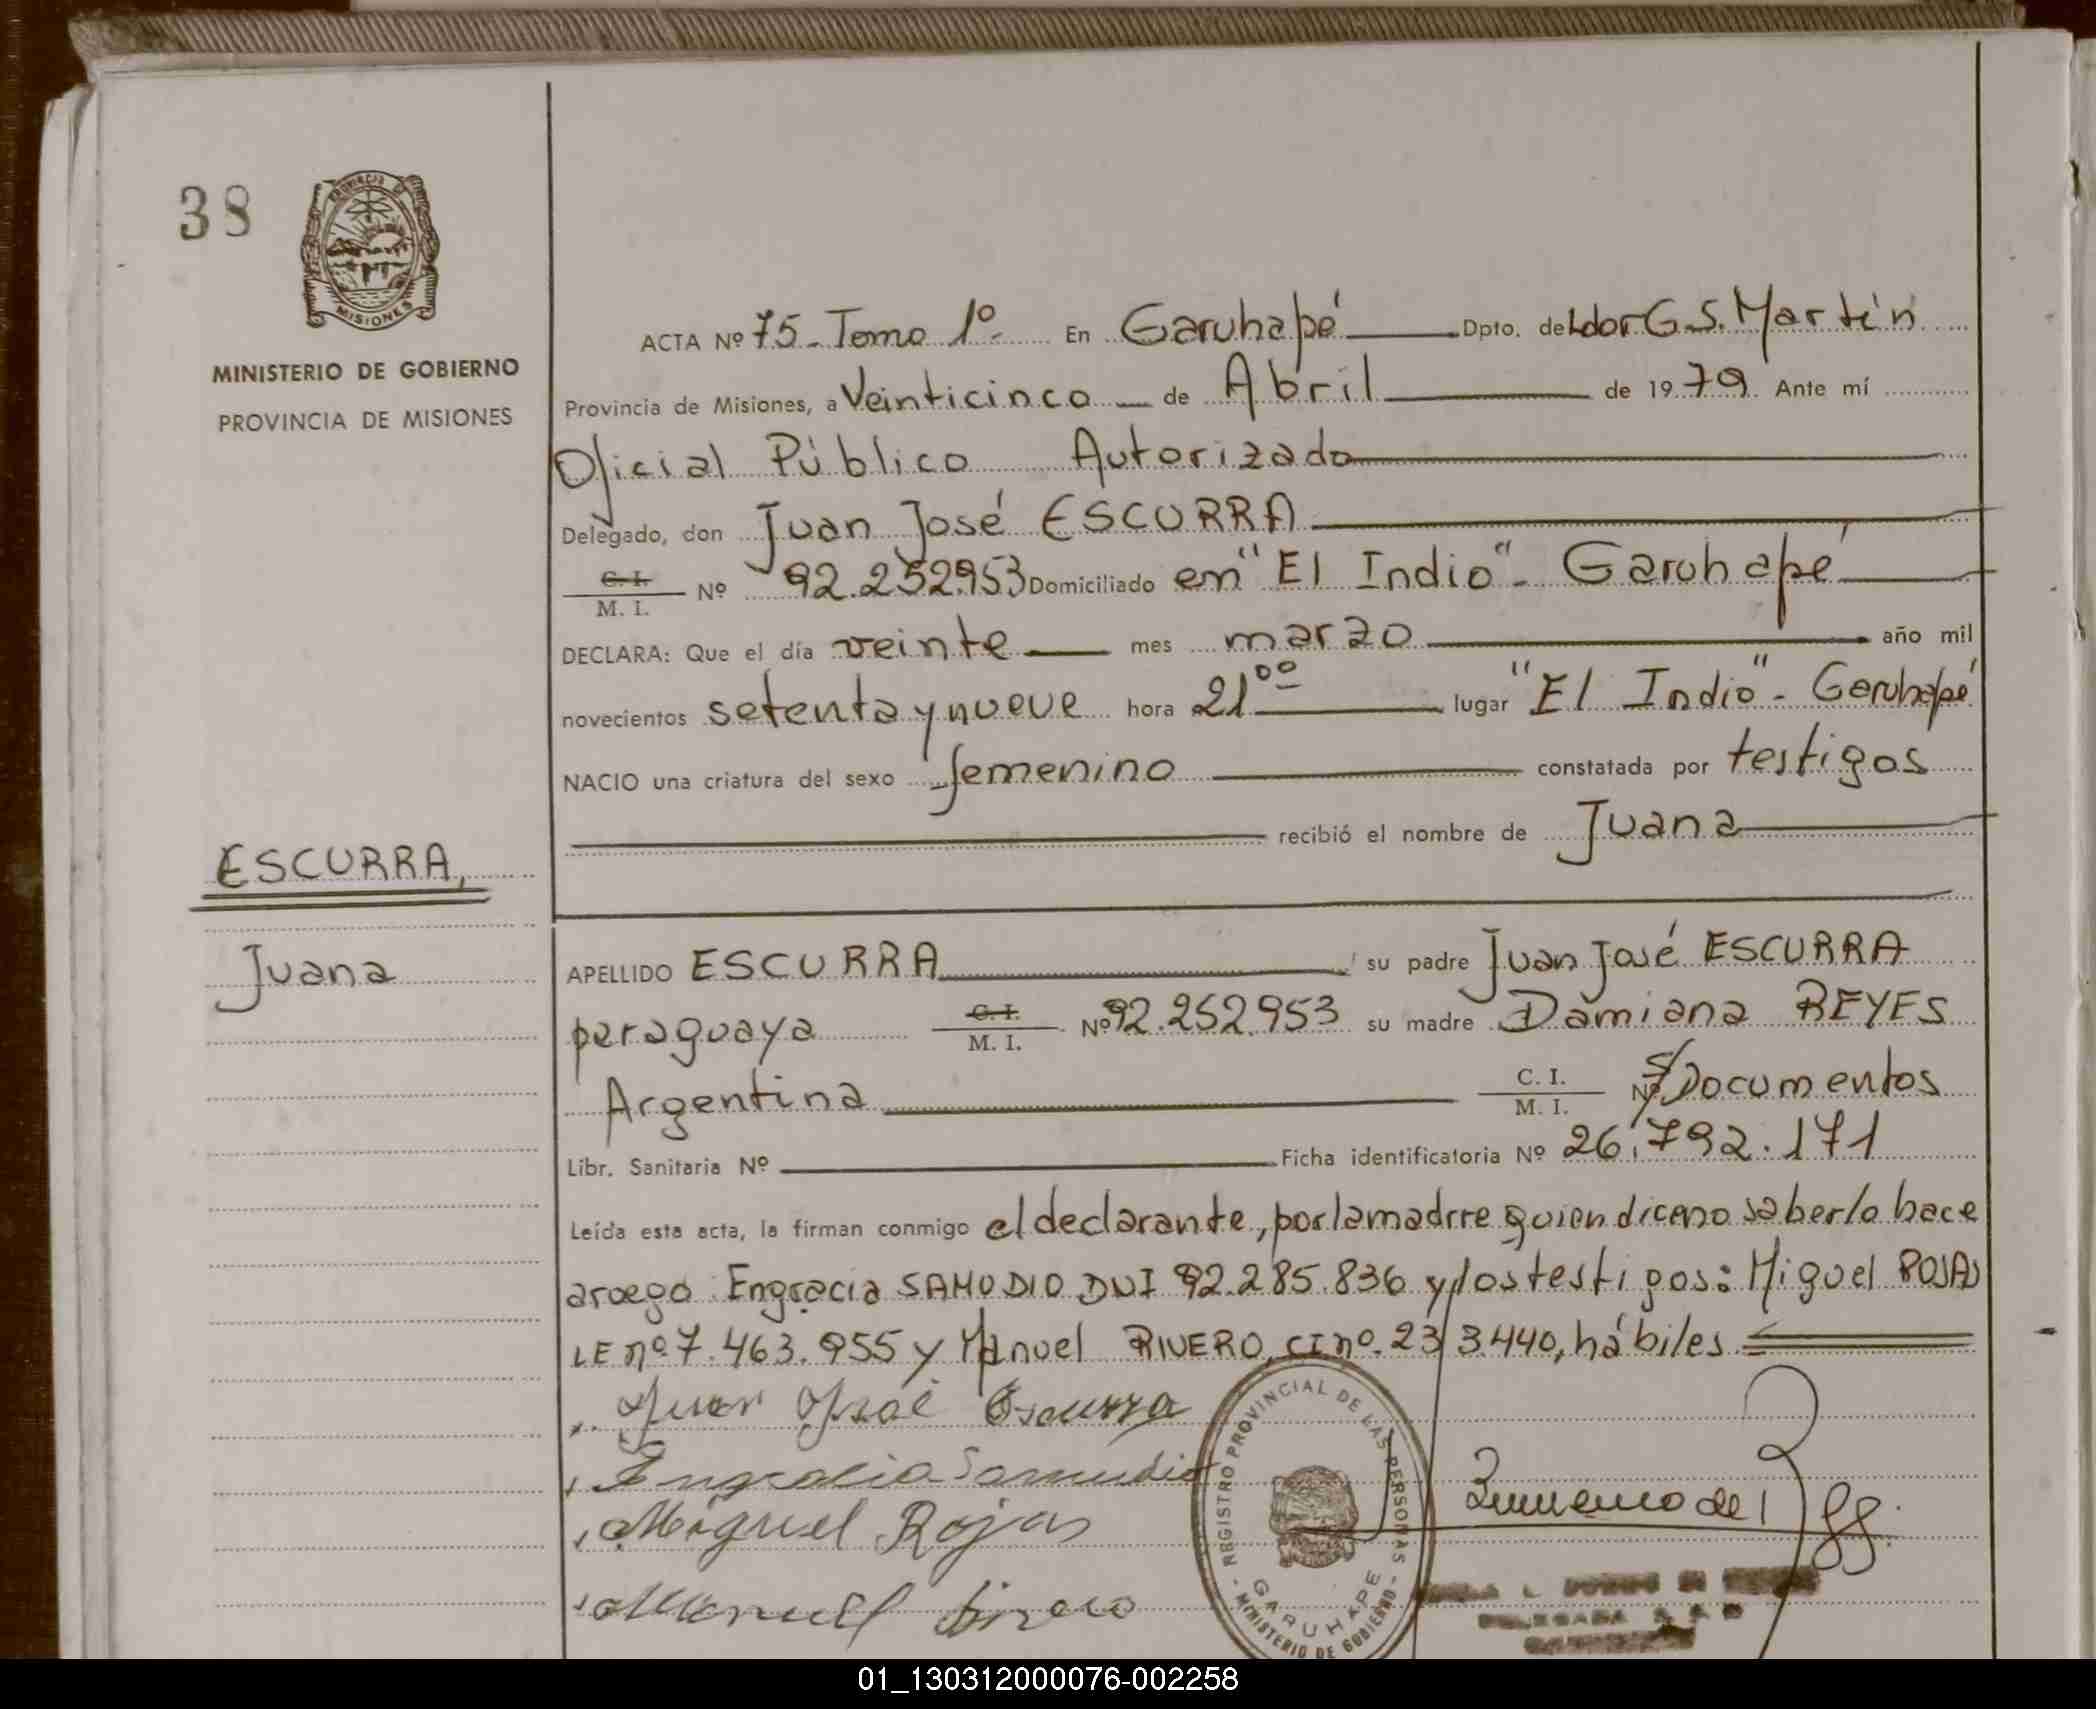 38
PROVINCIA DE
MISIONES
MINISTERIO DE GOBIERNO
PROVINCIA DE MISIONES
ESCURRA,
Juana
ACTA Nº 75 - Tomo 1º - En Garuhapé Dpto. de Ldor G. S. Martín
Provincia de Misiones, a Veinticinco de Abril de 1979. Ante mí
Oficial Público Autorizado
Delegado, don Juan José ESCURRA
C. I.
M. I. Nº 92.252.953 Domiciliado em "El Indio" - Garuhapé
DECLARA: Que el día veinte mes marzo año mil
novecientos setenta y nueve hora 21 00 lugar "El Indio" - Garuhapé
NACIO una criatura del sexo femenino constatada por testigos
recibió el nombre de Juana
APELLIDO ESCURRA su padre Juan José ESCURRA
paraguaya C. I. M. I. Nº 92.252.953 su madre Damiana REYES
Argentina C. I. M. I. Nº S/Documentos
Libr. Sanitaria Nº Ficha identificatoria Nº 26.792.171
Leída esta acta, la firman conmigo el declarante, por la madrre quien dice no saber lo hace
a ruego: Engracia SAMUDIO DNI 92.285.836 y los testigos: Miguel ROJAS
LE nº 7.463.955 y Manuel RIVERO, CI nº. 233.440, hábiles
Juan José Escurra
Engracia Samudio
Miguel Rojas
Manuel
REGISTRO PROVINCIAL DE LAS PERSONAS
GARUHAPE
- MINISTERIO DE GOBIERNO -
01_130312000076-002258